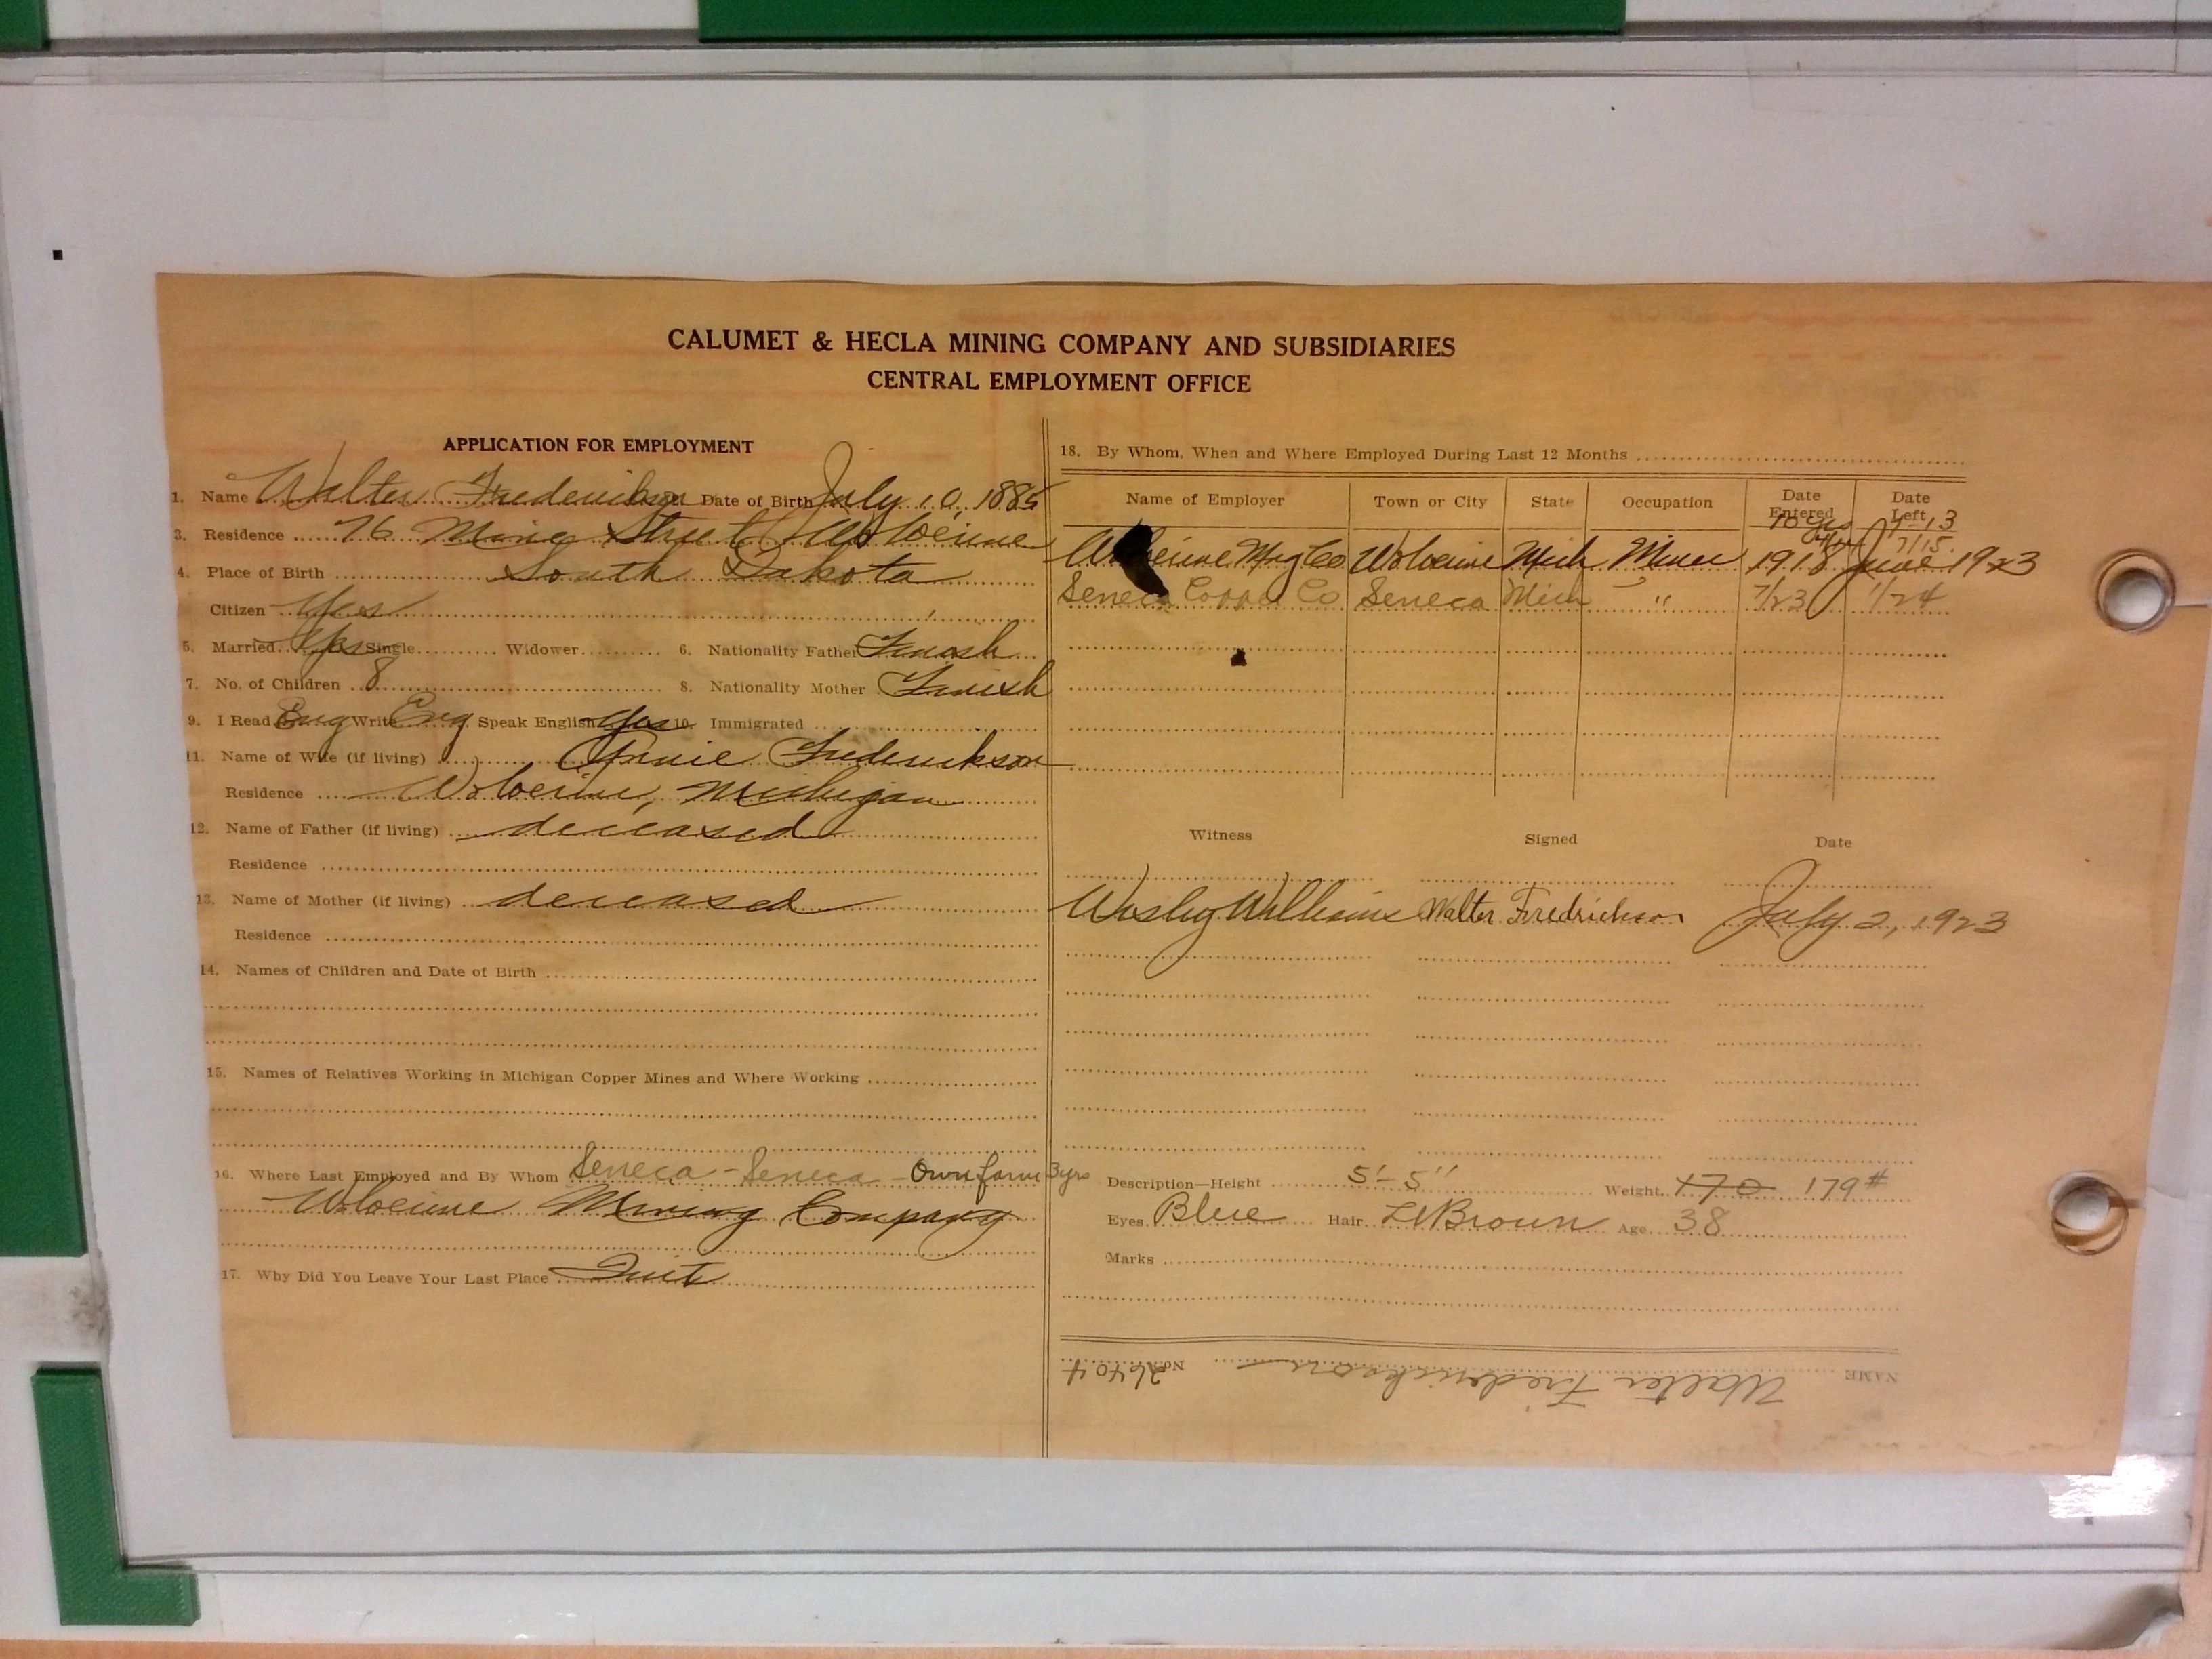 CALUMET & HECLA MINING COMPANY AND SUBSIDIARIES
CENTRAL EMPLOYMENT OFFICE
APPLICATION FOR EMPLOYMENT
1. Name Walter Frederikson Date of Birth July 10, 1885
3. Residence 76 Mine Street Wolverine
4. Place of Birth South Dakota
Citizen Yes
5. Married Yes Single Widower 6. Nationality Father Finish
7. No. of Children 8 8. Nationality Mother Finish
9. I Read Eng Write Eng Speak English Yes 10. Immigrated
11. Name of Wife (if living) Frederikson
Residence Wolverine, Michigan
12. Name of Father (if living) deceased
Residence
13. Name of Mother (if living) deceased
Residence
14. Names of Children and Date of Birth
15. Names of Relatives Working in Michigan Copper Mines and Where Working
16. Where Last Employed and By Whom Seneca - Seneca - Own farm 3 yrs
Wolverine Mining Company
17. Why Did You Leave Your Last Place Quit
18. By Whom, When and Where Employed During Last 12 Months
Name of Employer Town or City State Occupation Date Entered Date Left
10 yrs
7/15
Wolverine Mng Co Wolverine Mich Miner 1918 June 1923
Seneca Copper Co Seneca Mich " 7/23 1/24
Witness Signed Date
Wesley Williams Walter Fredrickson July 2, 1923
Description—Height 5'-5" Weight 170 179#
Eyes Blue Hair Lt Brown Age 38
Marks
NAME Walter Fredrickson No. 26404